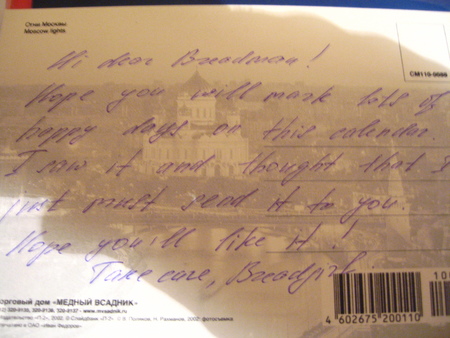 Огни Москвы
Moscow lights
СМ110-5068
Hi dear Breadman!
Hope you will mark lots of
happy days on this calendar.
I saw it and thought that I
just must send it to you.
Hope you'll like it!
Take care, Breadgirl.
орговый дом «МЕДНЫЙ ВСАДНИК»
320-9135, 320-9136, 329-2137 • www.mvsadnik.ru
4 602675 200110